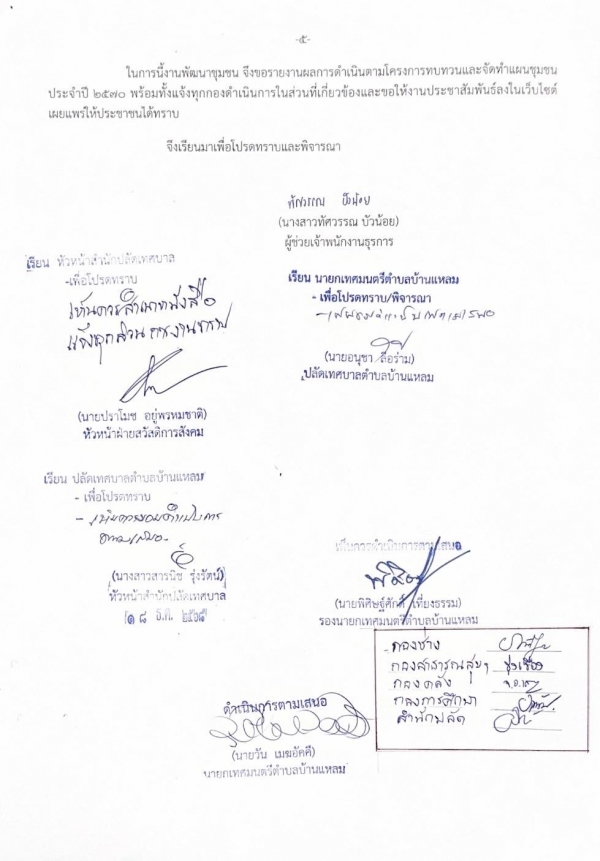 -๕-
ในการนี้งานพัฒนาชุมชน จึงขอรายงานผลการดำเนินตามโครงการทบทวนและจัดทำแผนชุมชน
ประจำปี ๒๕๗๐ พร้อมทั้งแจ้งทุกกองดำเนินการในส่วนที่เกี่ยวข้องและขอให้งานประชาสัมพันธ์ลงในเว็บไซต์
เผยแพร่ให้ประชาชนได้ทราบ
จึงเรียนมาเพื่อโปรดทราบและพิจารณา
ทัศวรรณ บัวน้อย
(นางสาวทัศวรรณ บัวน้อย)
ผู้ช่วยเจ้าพนักงานธุรการ
เรียน หัวหน้าสำนักปลัดเทศบาล
-เพื่อโปรดทราบ
เห็นควรสำเนาหนังสือ
แจ้งทุกส่วนราชการทราบ
(นายปราโมช อยู่พรหมชาติ)
หัวหน้าฝ่ายสวัสดิการสังคม
เรียน นายกเทศมนตรีตำบลบ้านแหลม
- เพื่อโปรดทราบ/พิจารณา
(นายอนุชา ลือร่าม)
ปลัดเทศบาลตำบลบ้านแหลม
เรียน ปลัดเทศบาลตำบลบ้านแหลม
- เพื่อโปรดทราบ
ตามเสนอ
(นางสาวสารนิช รุ่งรัตน์)
หัวหน้าสำนักปลัดเทศบาล
๑๘ ธ.ค. ๒๕๖๘
เห็นควรดำเนินการตามเสนอ
(นายพิศิษฐ์ศักดิ์ เที่ยงธรรม)
รองนายกเทศมนตรีตำบลบ้านแหลม
กองช่าง
กองสาธารณสุขฯ
กองคลัง
กองการศึกษา
สำนักปลัด
ดำเนินการตามเสนอ
(นายวัน เมฆอัคคี)
นายกเทศมนตรีตำบลบ้านแหลม